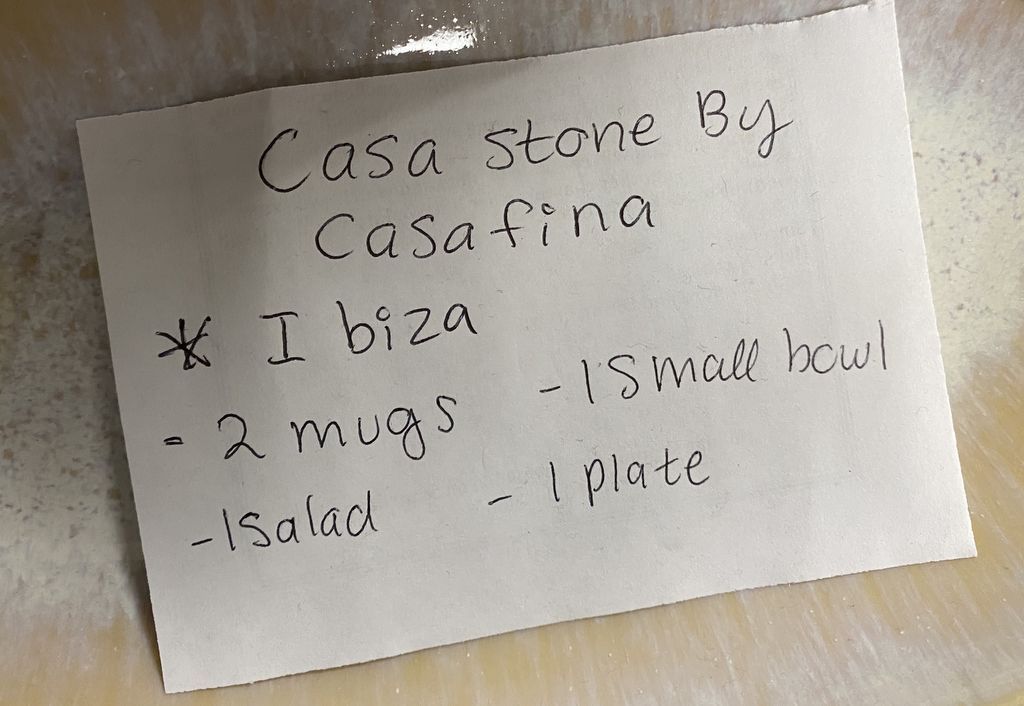 Casa stone By
Casafina
* Ibiza
- 2 mugs
- 1 Small bowl
- 1 Salad
- 1 plate